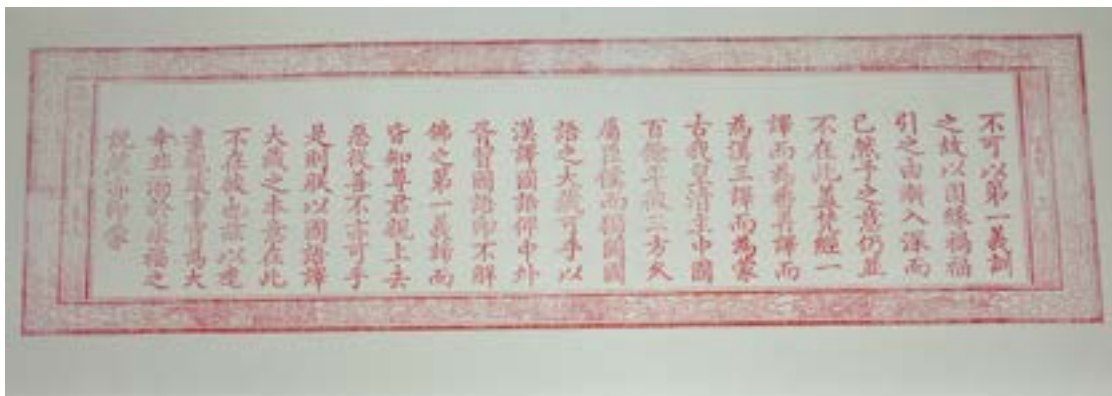 不可以第一義訓
之故以因緣禍福
引之由漸入深而
已然予之意仍並
不在此蓋梵經一
譯而為番再譯而
為漢三譯而為蒙
古我皇清主中國
百餘年彼三方久
屬臣僕而獨闕國
語之大藏可乎以
漢譯國語俾中外
胥習國語即不解
佛之第一義諦而
皆知尊君親上去
惡從善不亦可乎
是則朕以國語譯
大藏之本意在此
不在彼也茲以耄
老觀蕆事實為大
幸非溺於求福之
說然亦即蒙